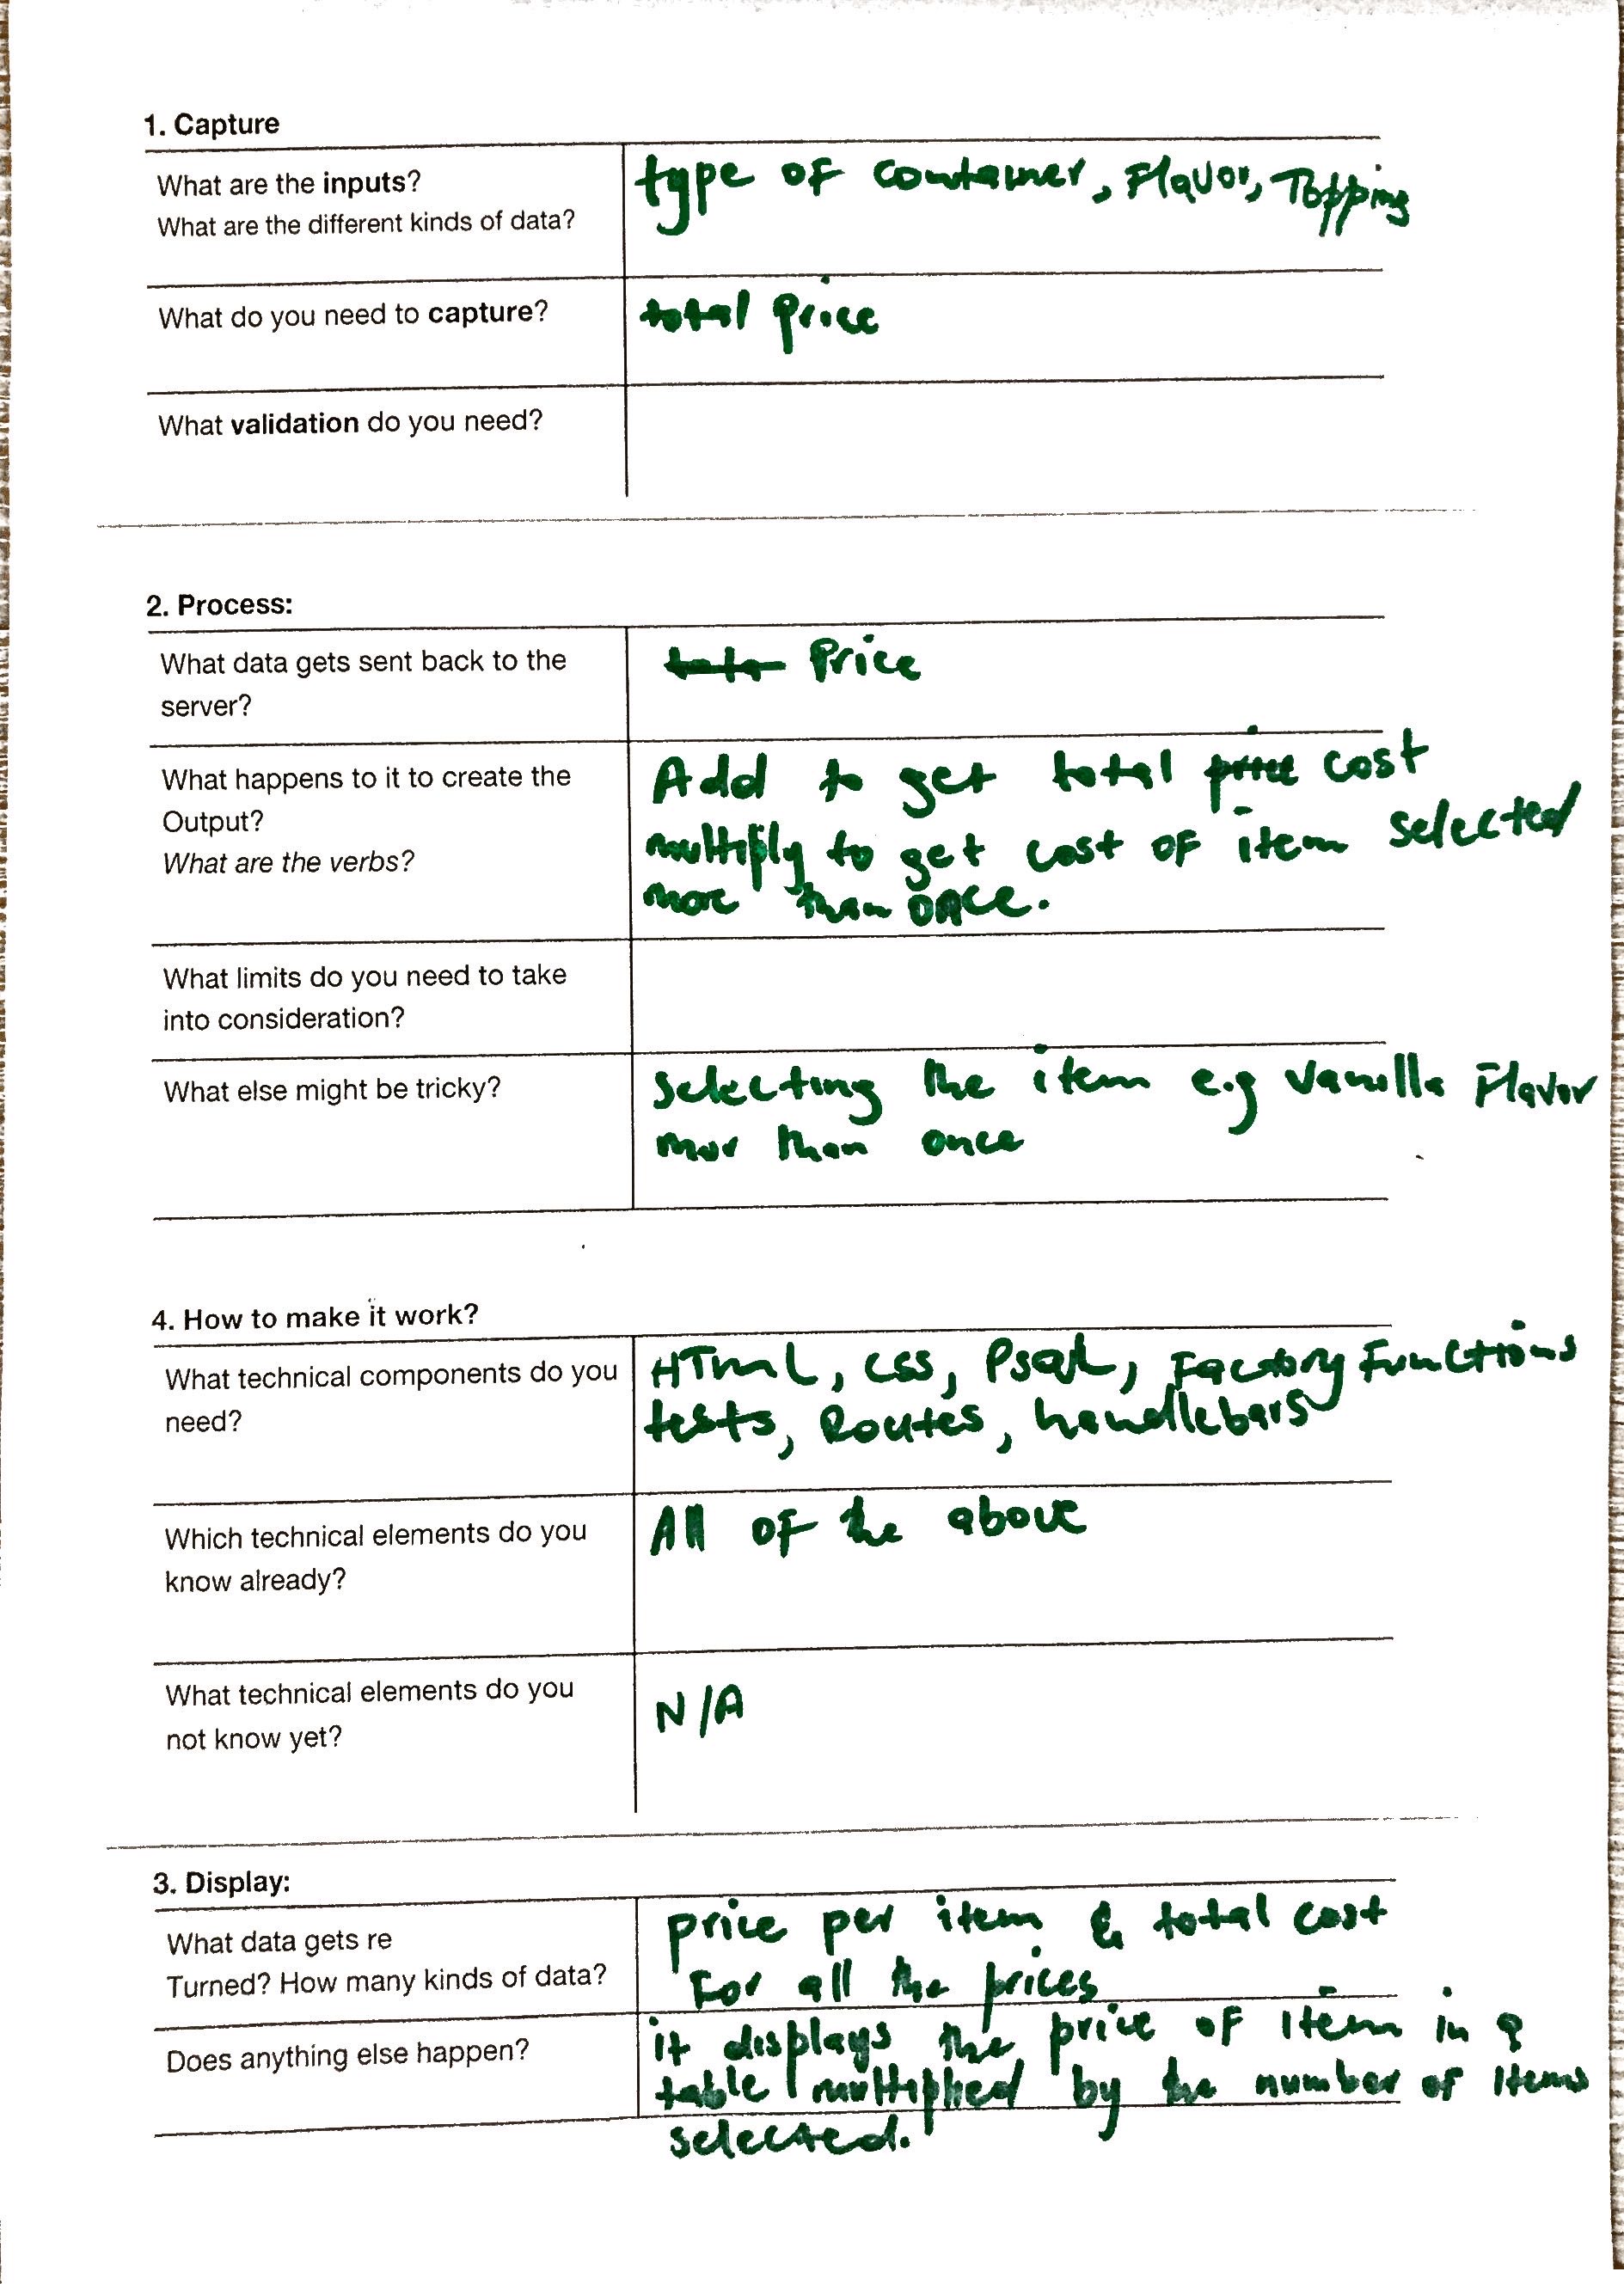 1. Capture
What are the inputs?
What are the different kinds of data?
type of container, Flavor, Topping
What do you need to capture?
total price
What validation do you need?
2. Process:
What data gets sent back to the
server?
Price
What happens to it to create the
Output?
What are the verbs?
Add to get total price cost
multiply to get cost of item selected
more than once.
What limits do you need to take
into consideration?
What else might be tricky?
Selecting the item e.g Vanilla Flavor
mor than once
4. How to make it work?
What technical components do you
need?
HTmL, CSS, PsqL, Factory Functions
tests, Routes, handlebars
Which technical elements do you
know already?
All of the above
What technical elements do you
not know yet?
N/A
3. Display:
What data gets re
Turned? How many kinds of data?
price per item & total cost
For all the prices
Does anything else happen?
it displays the price of item in a
table multiplied by the number of items
selected.